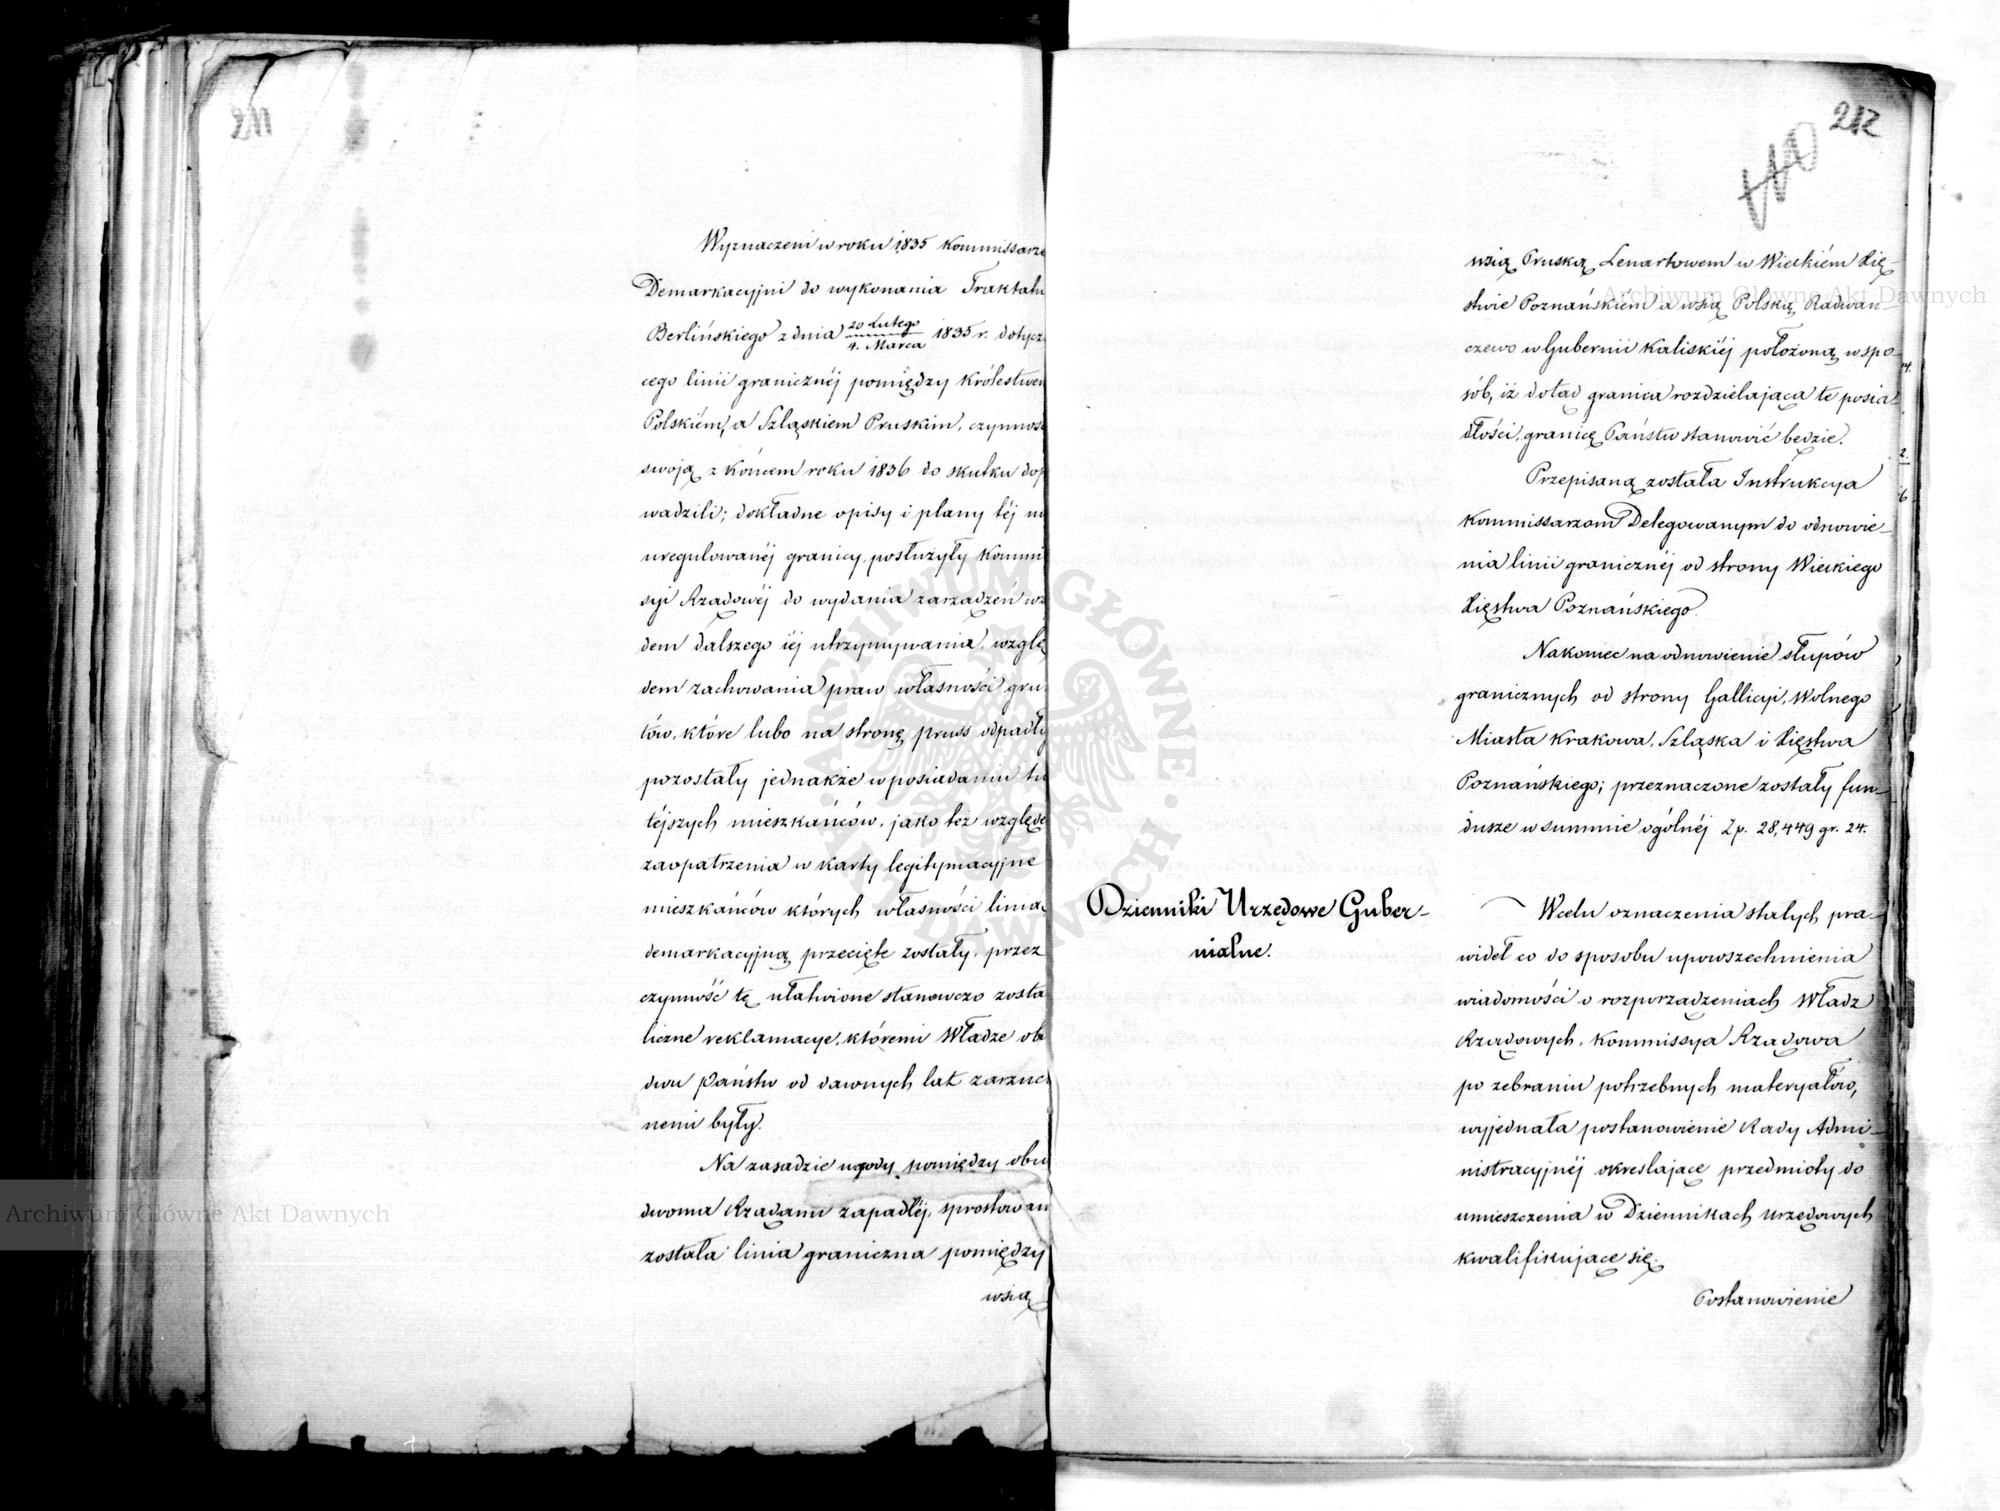 Wyznaczeni w roku 1835 Kommissarze
Demarkacyjni do wykonania Traktatu
Berlińskiego z dnia 20 Lutego / 4. Marca 1835 r. dotycz
cego linii granicznéj pomiędzy Królestwem
Polskiém, a Szląskiem Pruskim, czynność
swoją z końcem roku 1836 do skutku dop
wadzili; dokładne opisy i plany téj no
uregulowanéj granicy, posłużyły Kommi
syi Rządowéj do wydania zarządzeń wz
dem dalszego iéj utrzymywania, wzglę
dem zachowania praw własności gru
tów, które lubo na stronę pruss odpadły
pozostały jednakże w posiadaniu tu
téjszych mieszkańców, jako też względe
zaopatrzenia w karty legitymacyjne
mieszkańców których własności linią
demarkacyjną przecięte zostały, przez
czynność tę ułatwione stanowczo zosta
liczne reklamacye, któremi Władze ob
dwu Państw od dawnych lat zarzuc
nemi były.
Na zasadzie ugody pomiędzy obu
dwoma Rządami zapadłéj, sprostowan
została linia graniczna pomiędzy
wsią
212
wsią Pruską Lenartowem w Wielkiém Xię-
stwie Poznańskiém a wsią Polską Radwań-
czewo w Gubernii Kaliskiéj położoną, w spo-
sób, iż dotąd granica rozdzielająca te posia-
dłości, granicę Państw stanowić będzie.
Przepisaną została Instrukcya
Kommissarzom Delegowanym do odnowie-
nia linii granicznéj od strony Wielkiego
Xięstwa Poznańskiego.
Nakoniec na odnowienie słupów
granicznych od strony Gallicyi, Wolnego
Miasta Krakowa, Szląska i Xięstwa
Poznańskiego; przeznaczone zostały fun-
dusze w summie ogólnéj Zp. 28,449 gr. 24.
Dzienniki Urzędowe Guber-
nialne.
W celu oznaczenia stałych pra-
wideł co do sposobu upowszechnienia
wiadomości o rozporządzeniach Władz
Rządowych, Kommissya Rządowa
po zebraniu potrzebnych materyałów,
wyjednała postanowienie Rady Admi-
nistracyjnéj określające przedmioty do
umieszczenia w Dziennikach urzędowych
kwalifikujące się.
Postanowienie
Archiwum Główne Akt Dawnych
Archiwum Główne Akt Dawnych
ARCHIWUM GŁÓWNE AKT DAWNYCH